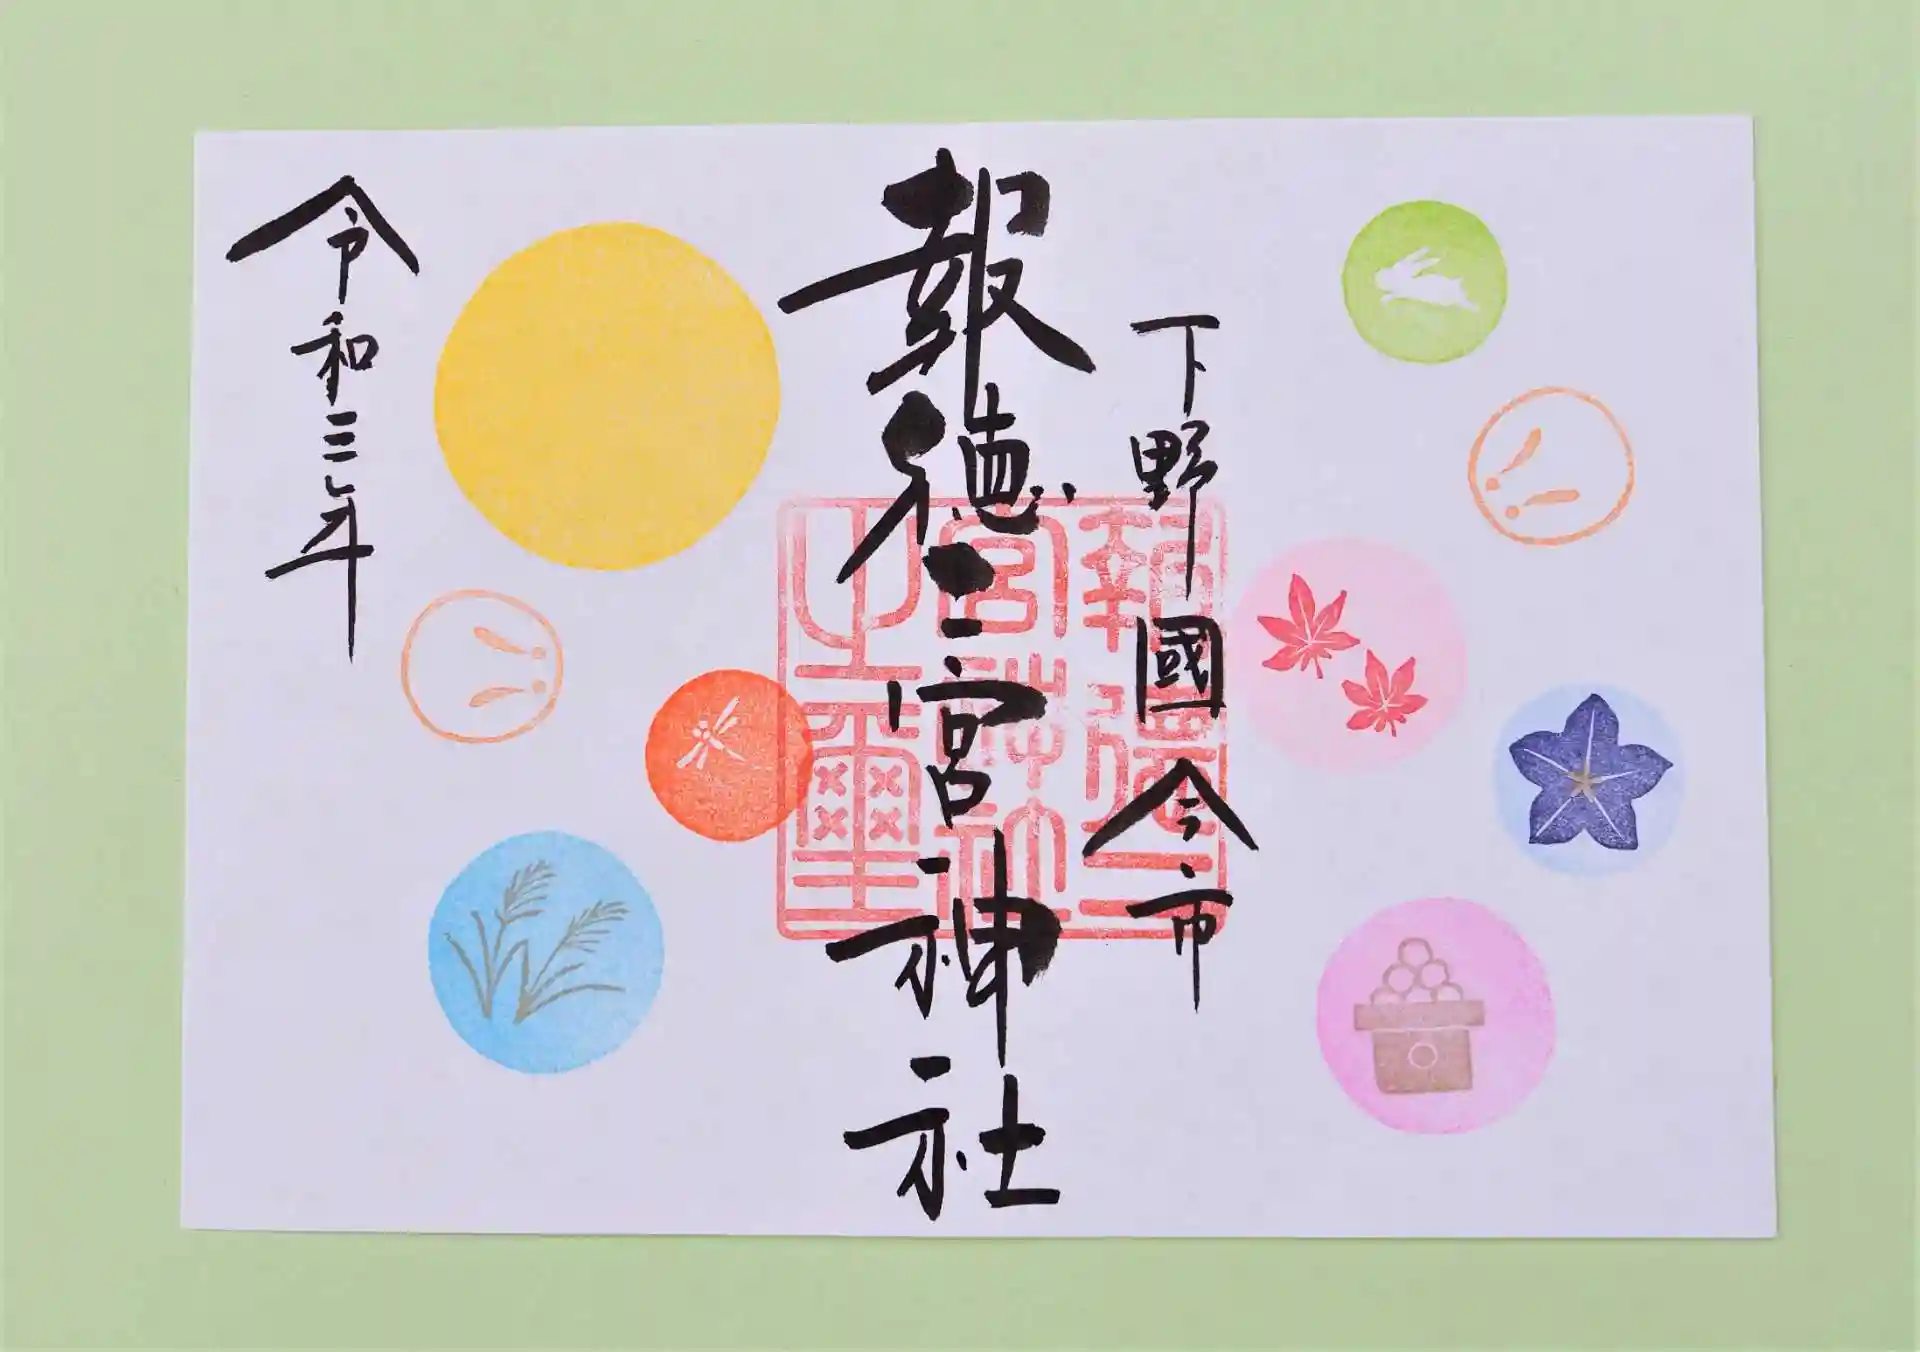 下野國今市
報徳二宮神社
令和三年
報徳二
宮神社
之璽